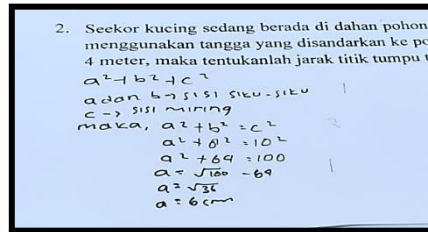 2. Seekor kucing sedang berada di dahan pohon
menggunakan tangga yang disandarkan ke po
4 meter, maka tentukanlah jarak titik tumpu
a²+b²+c²
adan b → sisi siku-siku
c → sisi miring
maka, a²+b²=c²
a²+6²=10²
a²+64=100
a=√100-64
a=√36
a=6cm